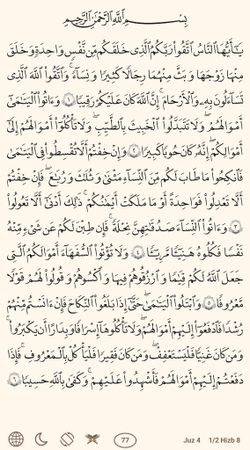 بِسْمِ ٱللَّهِ ٱلرَّحْمَٰنِ ٱلرَّحِيمِ
يَٰٓأَيُّهَا ٱلنَّاسُ ٱتَّقُوا۟ رَبَّكُمُ ٱلَّذِى خَلَقَكُم مِّن نَّفْسٍ وَٰحِدَةٍ وَخَلَقَ
مِنْهَا زَوْجَهَا وَبَثَّ مِنْهُمَا رِجَالًا كَثِيرًا وَنِسَآءً ۚ وَٱتَّقُوا۟ ٱللَّهَ ٱلَّذِى
تَسَآءَلُونَ بِهِۦ وَٱلْأَرْحَامَ ۚ إِنَّ ٱللَّهَ كَانَ عَلَيْكُمْ رَقِيبًا ١ وَءَاتُوا۟ ٱلْيَتَٰمَىٰٓ
أَمْوَٰلَهُمْ ۖ وَلَا تَتَبَدَّلُوا۟ ٱلْخَبِيثَ بِٱلطَّيِّبِ ۖ وَلَا تَأْكُلُوٓا۟ أَمْوَٰلَهُمْ إِلَىٰٓ
أَمْوَٰلِكُمْ ۚ إِنَّهُۥ كَانَ حُوبًا كَبِيرًا ٢ وَإِنْ خِفْتُمْ أَلَّا تُقْسِطُوا۟ فِى ٱلْيَتَٰمَىٰ
فَٱنكِحُوا۟ مَا طَابَ لَكُم مِّنَ ٱلنِّسَآءِ مَثْنَىٰ وَثُلَٰثَ وَرُبَٰعَ ۖ فَإِنْ خِفْتُمْ
أَلَّا تَعْدِلُوا۟ فَوَٰحِدَةً أَوْ مَا مَلَكَتْ أَيْمَٰنُكُمْ ۚ ذَٰلِكَ أَدْنَىٰٓ أَلَّا تَعُولُوا۟
٣ وَءَاتُوا۟ ٱلنِّسَآءَ صَدُقَٰتِهِنَّ نِحْلَةً ۚ فَإِن طِبْنَ لَكُمْ عَن شَىْءٍ مِّنْهُ
نَفْسًا فَكُلُوهُ هَنِيٓـًٔا مَّرِيٓـًٔا ٤ وَلَا تُؤْتُوا۟ ٱلسُّفَهَآءَ أَمْوَٰلَكُمُ ٱلَّتِى
جَعَلَ ٱللَّهُ لَكُمْ قِيَٰمًا وَٱرْزُقُوهُمْ فِيهَا وَٱكْسُوهُمْ وَقُولُوا۟ لَهُمْ قَوْلًا
مَّعْرُوفًا ٥ وَٱبْتَلُوا۟ ٱلْيَتَٰمَىٰ حَتَّىٰٓ إِذَا بَلَغُوا۟ ٱلنِّكَاحَ فَإِنْ ءَانَسْتُم مِّنْهُمْ
رُشْدًا فَٱدْفَعُوٓا۟ إِلَيْهِمْ أَمْوَٰلَهُمْ ۖ وَلَا تَأْكُلُوهَآ إِسْرَافًا وَبِدَارًا أَن يَكْبَرُوا۟ ۚ
وَمَن كَانَ غَنِيًّا فَلْيَسْتَعْفِفْ ۖ وَمَن كَانَ فَقِيرًا فَلْيَأْكُلْ بِٱلْمَعْرُوفِ ۚ فَإِذَا
دَفَعْتُمْ إِلَيْهِمْ أَمْوَٰلَهُمْ فَأَشْهِدُوا۟ عَلَيْهِمْ ۚ وَكَفَىٰ بِٱللَّهِ حَسِيبًا ٦
77 Juz 4 1/2 Hizb 8